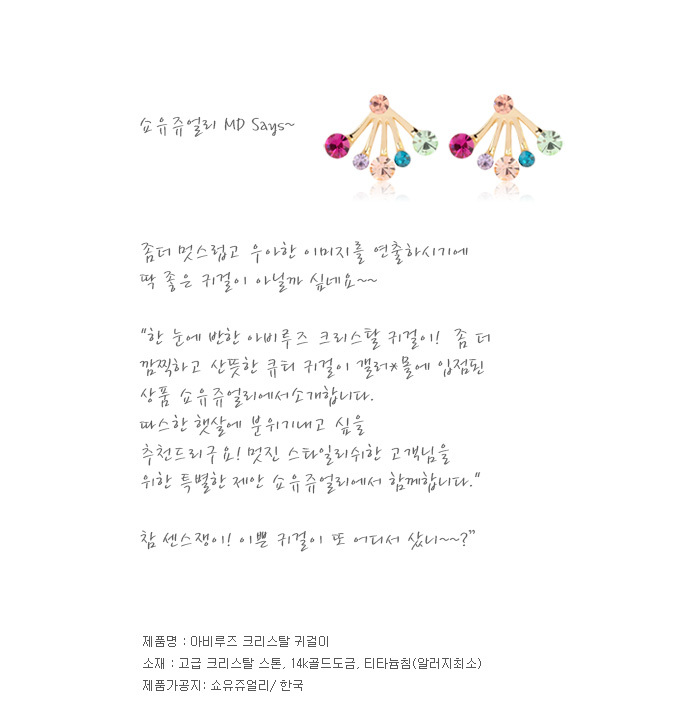 쇼유쥬얼리 MD Says~
좀더 멋스럽고 우아한 이미지를 연출하시기에
딱 좋은 귀걸이 아닐까 싶네요~~
"한 눈에 반한 아비루즈 크리스탈 귀걸이! 좀 더
깜찍하고 산뜻한 큐티 귀걸이 갤러*몰에 입점된
상품 쇼유쥬얼리에서소개합니다.
따스한 햇살에 분위기내고 싶을
추천드리구요! 멋진 스타일리쉬한 고객님을
위한 특별한 제안 쇼유쥬얼리에서 함께합니다."
참 센스쟁이! 이쁜 귀걸이 또 어디서 샀니~~?"
제품명 : 아비루즈 크리스탈 귀걸이
소재 : 고급 크리스탈 스톤, 14k골드도금, 티타늄침(알러지최소)
제품가공지: 쇼유쥬얼리/ 한국